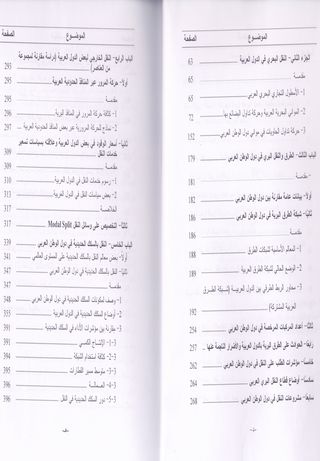 الموضـــوع الصفحة
الجزء الثاني- النقل البحري في الدول العربية 63
مقدمة 65
1- الأسطول التجاري البحري العربي 65
2- الموانئ البحرية العربية وحركة تداول البضائع بها 72
3- حركة تداول الحاويات في موانئ دول الوطن العربي 152
الباب الثالث- الطرق والنقل البري في دول الوطن العربي 179
مقدمة
أولاً- بيانات عامة مقارنة بين دول الوطن العربي 182
ثانياً- شبكة الطرق البرية في دول الوطن العربي 186
مقدمة 186
1- المعالم الأساسية لشبكات الطرق 188
2- الوضع الحالي لشبكة الطرق العربية 189
3- محاور الربط الطرقي بين الدول العربية (لشبكة الطرق
العربية المشتركة) 192
ثالثاً- أعداد المركبات المرخصة في دول الوطن العربي 254
رابعاً- الحوادث على الطرق البرية بالدول العربية والأضرار الناجمة عنها 257
خامساً- مؤشرات الطلب على النقل في دول الوطن العربي 260
سادساً- أوضاع قطاع النقل البري العربي 264
سابعاً- مشروعات النقل في دول الوطن العربي 268
الموضـــوع الصفحة
الباب الرابع- النقل الخارجي لبعض الدول العربية (دراسة مقارنة لمجموعة
من العناصر) 293
أولاً- حركة المرور عبر المنافذ الحدودية العربية 295
مقدمة 295
1- كثافة حركة المرور في المنافذ البرية 296
2- نماذج لحركة المرورية عبر بعض المنافذ الحدودية العربية 297
ثانياً- أسعار الوقود في بعض الدول العربية وعلاقته بسياسات تسعير
خدمات النقل 309
مقدمة 309
1- رسوم خدمات النقل 310
2- بعض سياسات النقل في الدول العربية 313
الخلاصة 317
ثالثاً- التخصيص على وسائل النقل Modal Split 317
الباب الخامس- النقل بالسكك الحديدية في دول الوطن العربي 341
أولاً- بعض معالم النقل بالسكك الحديدية على المستوى العالمي 341
ثانياً- النقل بالسكك الحديدية في دول الوطن العربي 347
مقدمة 347
1- وصف لمكونات السكك الحديدية في دول الوطن العربي 348
2- أوضاع السكك الحديدية في الدول العربية 355
3- مقارنة بين مؤشرات الأداء في السكك الحديدية 390
3-1- الإنتاج الكمي 391
3-2- كثافة استخدام الشبكة 394
3-3- متوسط مسير القطارات 395
3-4- العمالة 396
3-5- دور السكك الحديدية في النقل 396